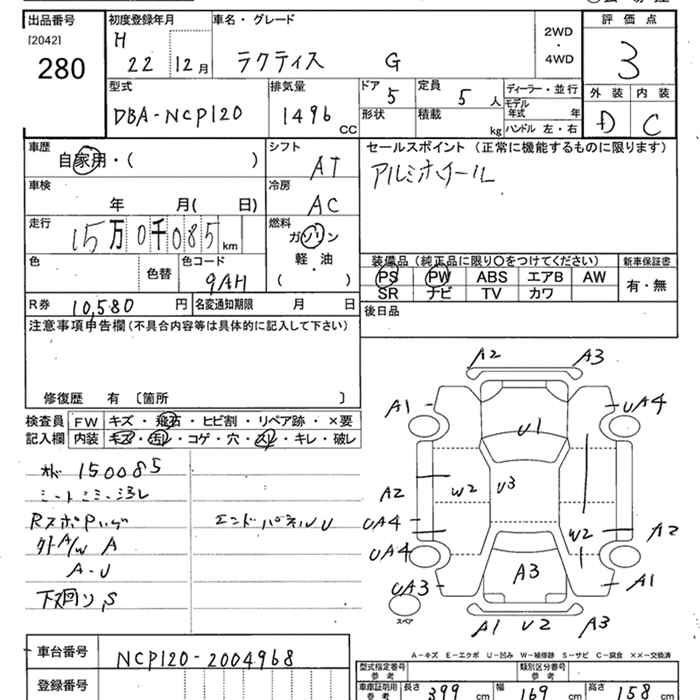 出品番号 初度登録年月 車名・グレード 評価点
[2042] H 2WD
280 22 12月 ラクティス G ・ 3
4WD
型式 排気量 ドア 定員 ディーラー・並行 外装 内装
DBA-NCP120 1496 CC 5 5 人 モデル年式 年 D C
形状 積載 kg ハンドル 左・右
車歴 シフト セールスポイント (正常に機能するものに限ります)
自家用・( ) AT アルミホイール
車検 冷房
年 月( 日) AC
走行 燃料
15万0千085 km ガソリン
軽・油
( )
装備品 (純正品に限り○をつけてください) 新車保証書
色 色替 色コード PS PW ABS エアB AW 有・無
9AH SR ナビ TV カワ
R券 10,580 円 名変通知期限 月 日 後日品
注意事項申告欄 (不具合内容等は具体的に記入して下さい)
修復歴 有 〔箇所 〕
検査員 FW キズ・飛石・ヒビ割・リペア跡・×要
記入欄 内装 キズ・汚レ・コゲ・穴・スレ・キレ・破レ
150085
エンドパネルU
A/W A
A-U
下廻りS
A2 A3
A1 UA4
U1
A2 W2 U3
UA4 W2 A2
UA4
UA3 A3 A1
スペア
A1 U2 A3
A-キズ E-エクボ U-凹み W-補修跡 S-サビ C-腐食 ××-交換済
車台番号 NCP120-2004968
登録番号
型式指定番号 参考 類別区分番号 参考
車庫証明用 参考 長さ 399 cm 幅 169 cm 高さ 158 cm